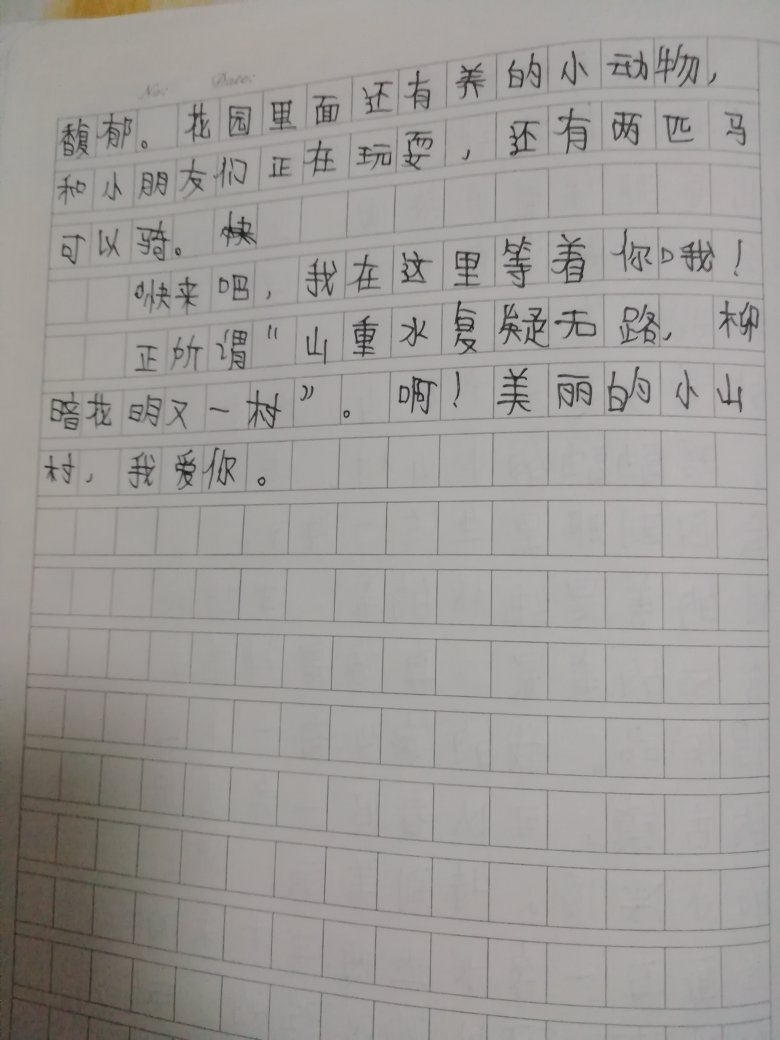 No: Date:
馥郁。花园里面还有养的小动物，
和小朋友们正在玩耍，还有两匹马
可以骑。
快来吧，我在这里等着你哦！
正所谓“山重水复疑无路，柳
暗花明又一村”。啊！美丽的小山
村，我爱你。